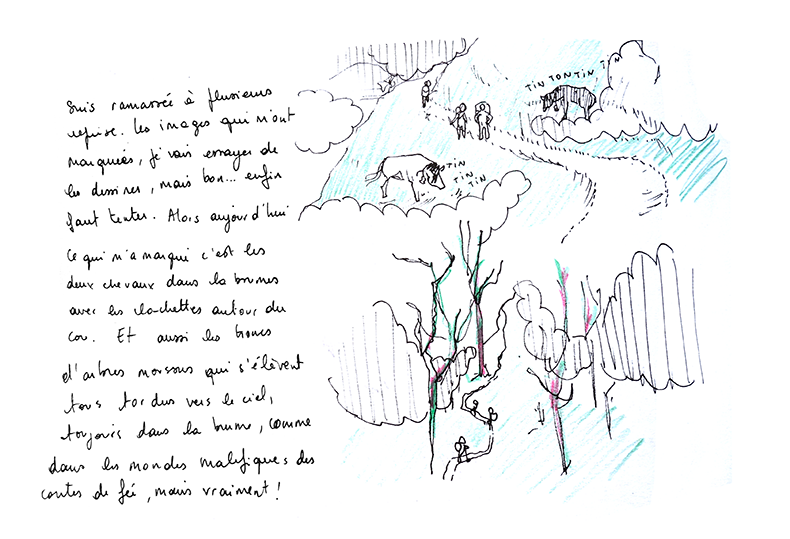 Suis ramassée à plusieurs
reprise. Les images qui m'ont
marquées, je vais essayer de
les dessiner, mais bon... enfin
faut tenter. Alors aujourd'hui
ce qui m'a marqué c'est les
deux chevaux dans la brumes
avec les clochettes autour du
cou. Et aussi les troncs
d'arbres moussus qui s'élèvent
tous tordus vers le ciel,
toujours dans la brume, comme
dans les mondes maléfiques des
contes de fée, mais vraiment !
TIN TON TIN TIN
TIN
TIN
TIN